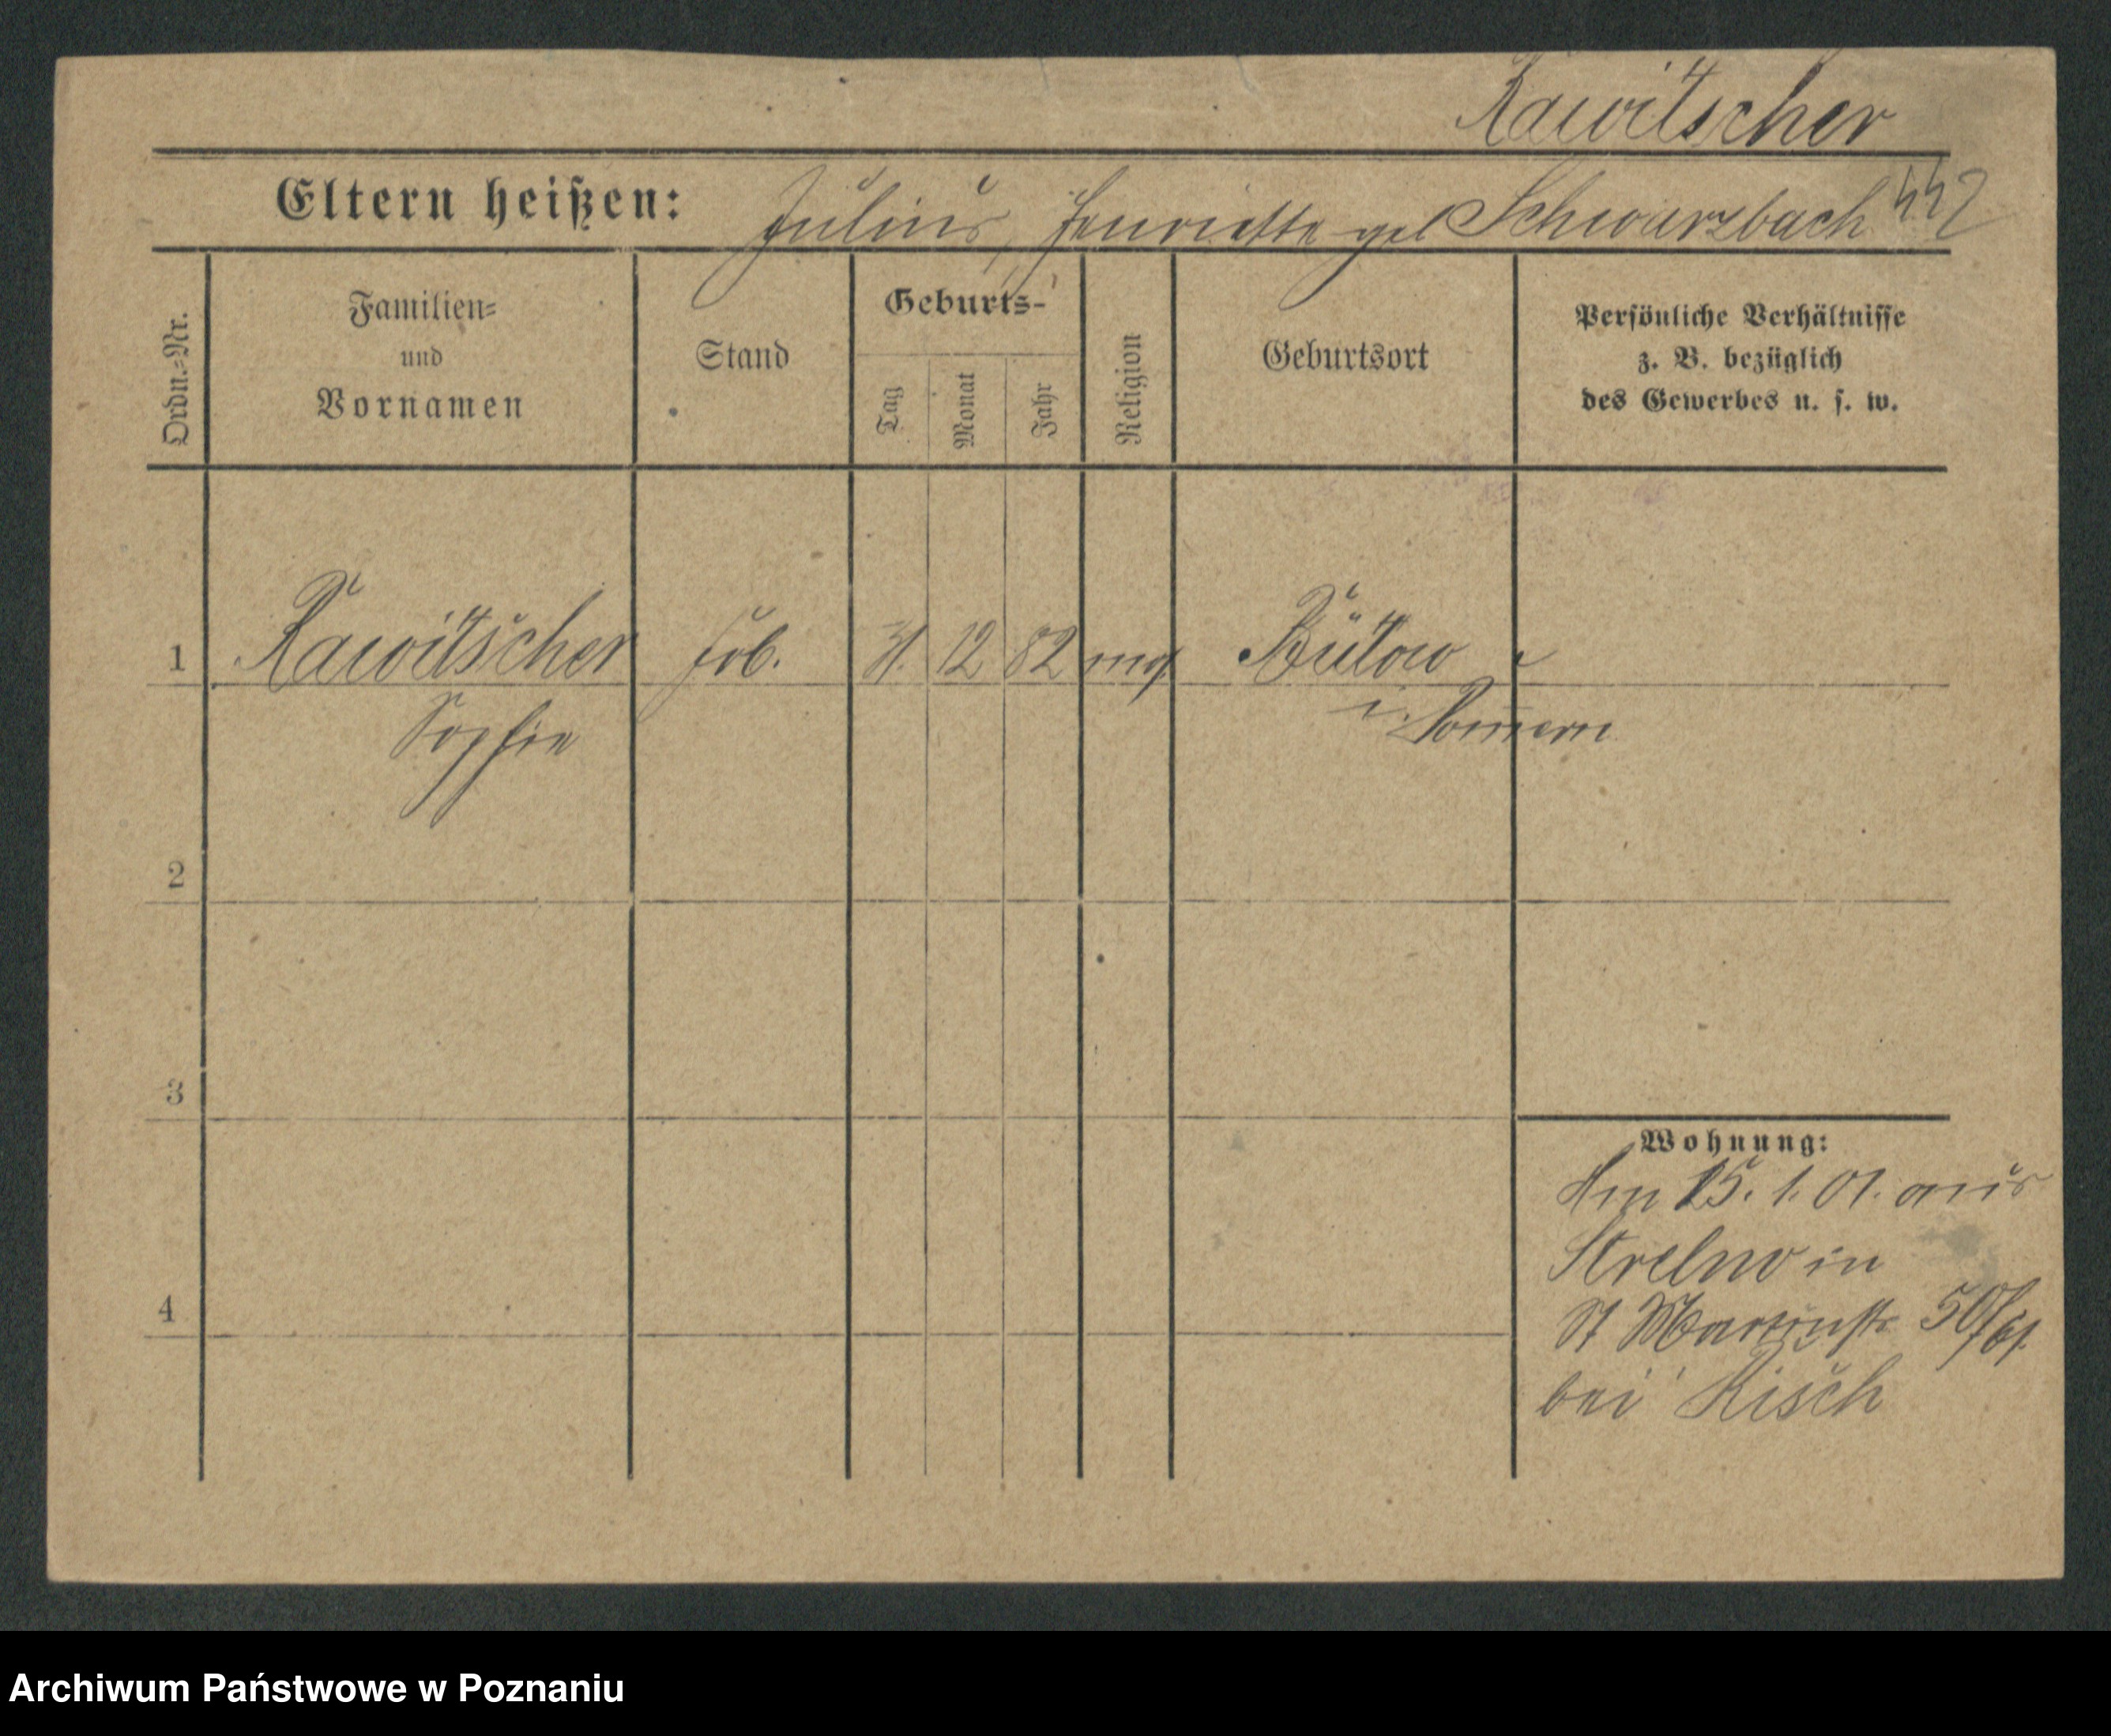 Rawitscher
Eltern heißen: Julius, Henriette geb Schwarzbach
Ordn.=Nr.
Familien=
und
Vornamen
Stand
Geburts-
Tag
Monat
Jahr
Religion
Geburtsort
Persönliche Verhältnisse
z. B. bezüglich
des Gewerbes u. s. w.
1 Rawitscher 31. 12 82 mos Bütow
Sophie i. Pommern
2
3
4
Wohnung:
Am 15. 1. 01. aus
Strelno in
St Martinstr 50/51
bei Kisch
Archiwum Państwowe w Poznaniu